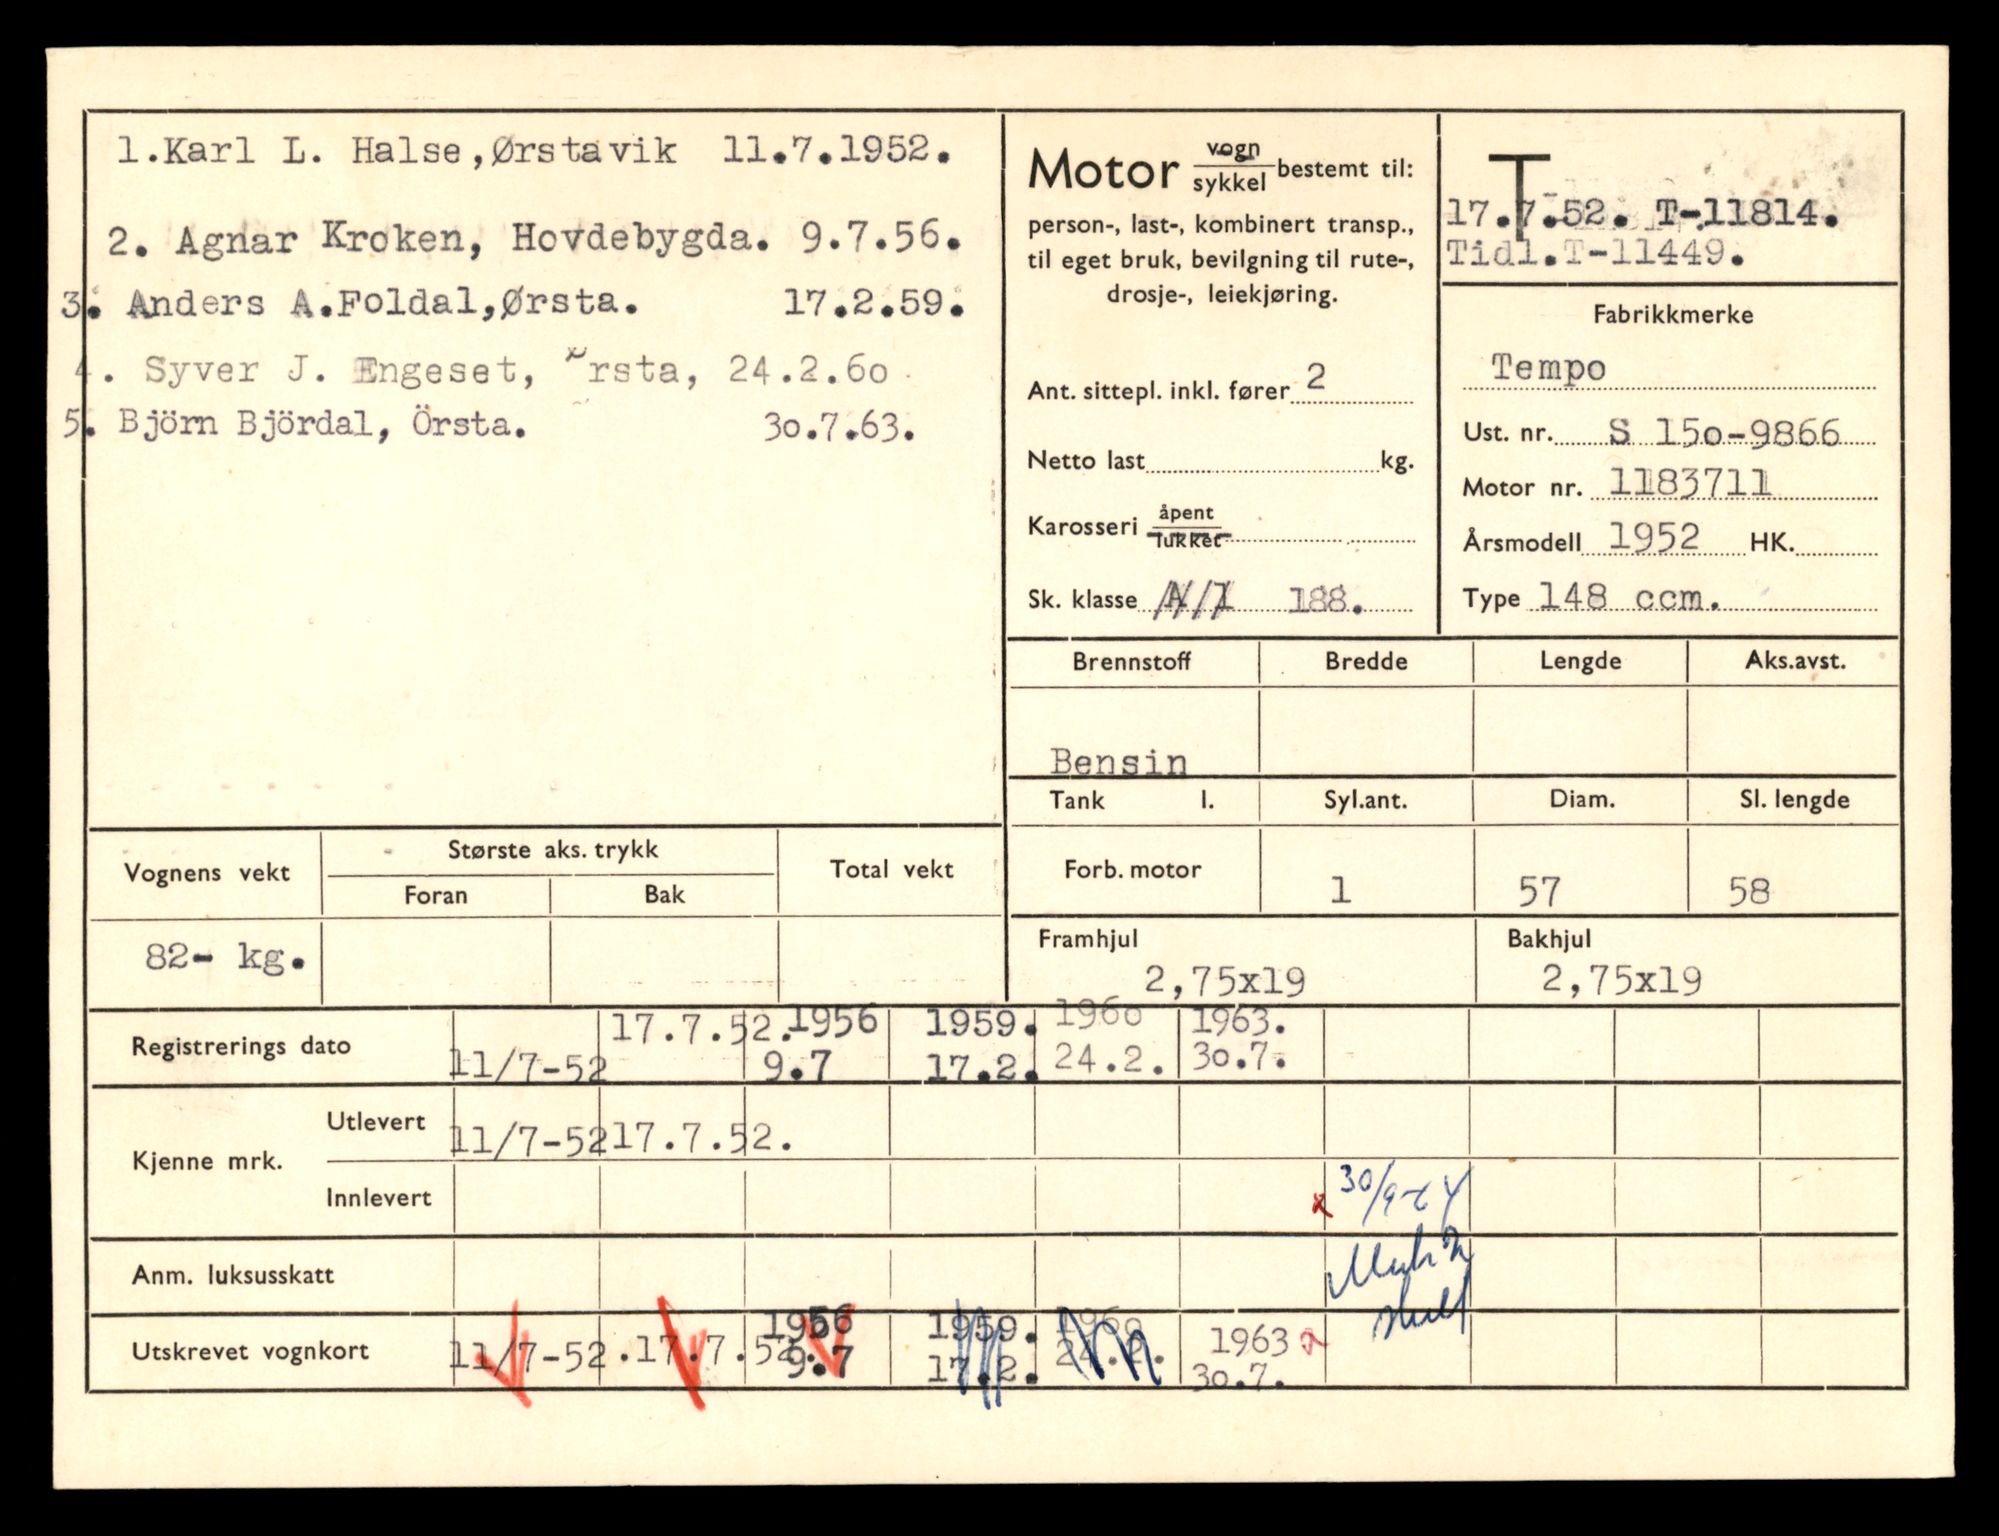 1.Karl L. Halse,Ørstavik 11.7.1952.
2. Agnar Kroken, Hovdebygda. 9.7.56.
3. Anders A.Foldal,Ørsta. 17.2.59.
4. Syver J. Engeset, rsta, 24.2.6o
5. Björn Björdal, Örsta. 3o.7.63.
Motor vogn/sykkel bestemt til:
person-, last-, kombinert transp.,
til eget bruk, bevilgning til rute-,
drosje-, leiekjøring.
Ant. sittepl. inkl. fører 2
Netto last kg.
Karosseri åpent/lukket
Sk. klasse A/1 188.
T
17.7.52. T-11814.
Tidl.T-11449.
Fabrikkmerke
Tempo
Ust. nr. S 15o-9866
Motor nr. 1183711
Årsmodell 1952 HK.
Type 148 ccm.
Brennstoff Bredde Lengde Aks.avst.
Bensin
Tank l. Syl.ant. Diam. Sl. lengde
Forb. motor 1 57 58
Framhjul Bakhjul
2,75x19 2,75x19
Vognens vekt Største aks. trykk Total vekt
Foran Bak
82- kg.
Registrerings dato 11/7-52 17.7.52. 1956 9.7 1959. 17.2. 196o 24.2. 1963. 3o.7.
Kjenne mrk. Utlevert 11/7-52 17.7.52.
Innlevert x 30/9-64
Anm. luksusskatt
Utskrevet vognkort 11/7-52. 17.7.52. 1956 9.7 1959. 17.2. 196o 24.2. 1963 3o.7.